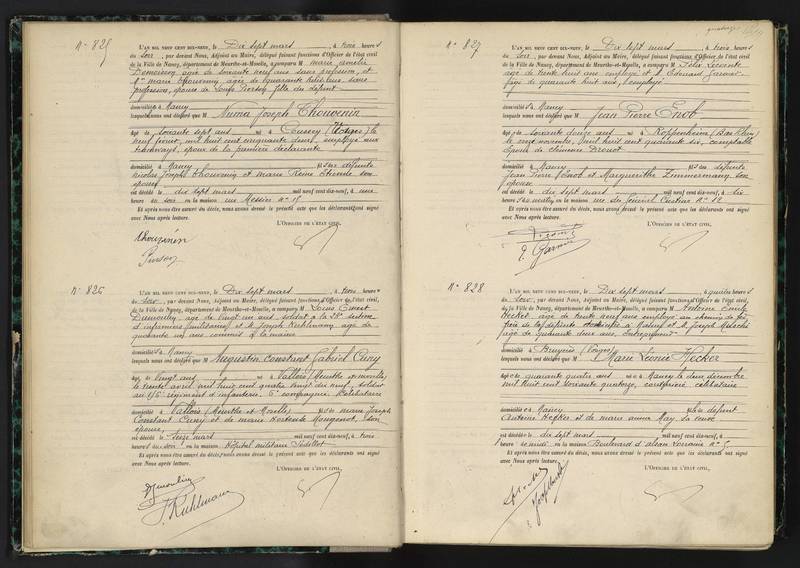 N° 825
L'AN MIL NEUF CENT DIX-NEUF, le Dix sept mars, à trois heures
du soir, par devant Nous, Adjoint au Maire, délégué faisant fonctions d'Officier de l'état civil,
de la Ville de Nancy, département de Meurthe-et-Moselle, a comparu M marie amélie
agée de soixante neuf ans sans profession, et
marie Thouvenin, agée de quarante ans, sans
profession, épouse de Louis fille du défunt
domiciliés à Nancy
lesquels nous ont déclaré que M Numa Joseph Thouvenin
âgé de soixante sept ans né à Coussey (Vosges) le
neuf février, mil huit cent cinquante deux, employé aux
tramways, époux de la première déclarante
domicilié à Nancy fils des défunts
Nicolas Joseph Thouvenin et marie Reine Etienne son
épouse
est décédé le dix sept mars mil neuf cent dix-neuf, à une
heure du soir en la maison rue Messier n° 15
Et après nous être assuré du décès, nous avons dressé le présent acte que les déclarants ont signé
avec Nous après lecture.
L'OFFICIER DE L'ÉTAT CIVIL,
Thouvenin
N° 826
L'AN MIL NEUF CENT DIX-NEUF, le Dix sept mars, à trois heures
du soir, par devant Nous, Adjoint au Maire, délégué faisant fonctions d'Officier de l'état civil,
de la Ville de Nancy, département de Meurthe-et-Moselle, a comparu M Louis Ernest
Dumoulin, age de vingt un ans soldat à la 23e section
d'infirmiers militaires et M Joseph Kuhlmann age de
quarante un ans commis à la mairie
domiciliés à Nancy
lesquels nous ont déclaré que M Augustin Constant Gabriel Cuny
âgé de vingt ans né à Vallois (Meurthe et moselle)
le trente avril mil huit cent quatre vingt dix neuf, soldat
au 156e régiment d'infanterie 5e compagnie. Célibataire
domicilié à Vallois (Meurthe et Moselle) fils de Joseph
Constant Cuny et de marie Hortense Mougenot, son
épouse,
est décédé le seize mars mil neuf cent dix-neuf, à trois
heures du soir en la maison Hôpital militaire Sédillot
Et après nous être assuré du décès, nous avons dressé le présent acte que les déclarants ont signé
avec Nous après lecture.
L'OFFICIER DE L'ÉTAT CIVIL,
Dumoulin
J. Kuhlmann
N° 827
L'AN MIL NEUF CENT DIX-NEUF, le Dix sept mars, à trois heures
du soir, par devant Nous, Adjoint au Maire, délégué faisant fonctions d'Officier de l'état civil,
de la Ville de Nancy, département de Meurthe-et-Moselle, a comparu M Félix
age de trente huit ans employé et M Edouard Garnier
âgé de quarante huit ans, employé
domiciliés à Nancy
lesquels nous ont déclaré que M Jean Pierre Enob
âgé de soixante douze ans né à Roppenheim (Bas Rhin)
le onze novembre, mil huit cent quarante six, comptable
époux de Drouot
domicilié à Nancy fils des défunts
Jean Pierre Enob et Marguerithe Zimmermann son
épouse
est décédé le dix sept mars mil neuf cent dix-neuf, à six
heures du matin, en la maison rue du Général Custine N° 12
Et après nous être assuré du décès, nous avons dressé le présent acte que les déclarants ont signé
avec Nous après lecture.
L'OFFICIER DE L'ÉTAT CIVIL,
E. Garnier
N° 828
L'AN MIL NEUF CENT DIX-NEUF, le Dix sept mars, à quatre heures
du soir, par devant Nous, Adjoint au Maire, délégué faisant fonctions d'Officier de l'état civil,
de la Ville de Nancy, département de Meurthe-et-Moselle, a comparu M Antoine Emile
Hecker age de trente neuf ans employé au chemin de fer
frère de la défunte domicilié à et M Joseph
age de quarante deux ans. Entrepreneur
domicilié à Bruyères (Vosges)
lesquels nous ont déclaré que Marie Léonie Hecker
âgée de quarante quatre ans née à Nancy le deux décembre
mil huit cent soixante quatorze, couturière célibataire
domiciliée à Nancy fille de défunt
Antoine Hecker et de marie anna May, sa veuve
est décédée le dix sept mars mil neuf cent dix-neuf, à
heures du midi en la maison Boulevard d'alsace Lorraine n° 5
Et après nous être assuré du décès, nous avons dressé le présent acte que les déclarants ont signé
avec Nous après lecture.
L'OFFICIER DE L'ÉTAT CIVIL,